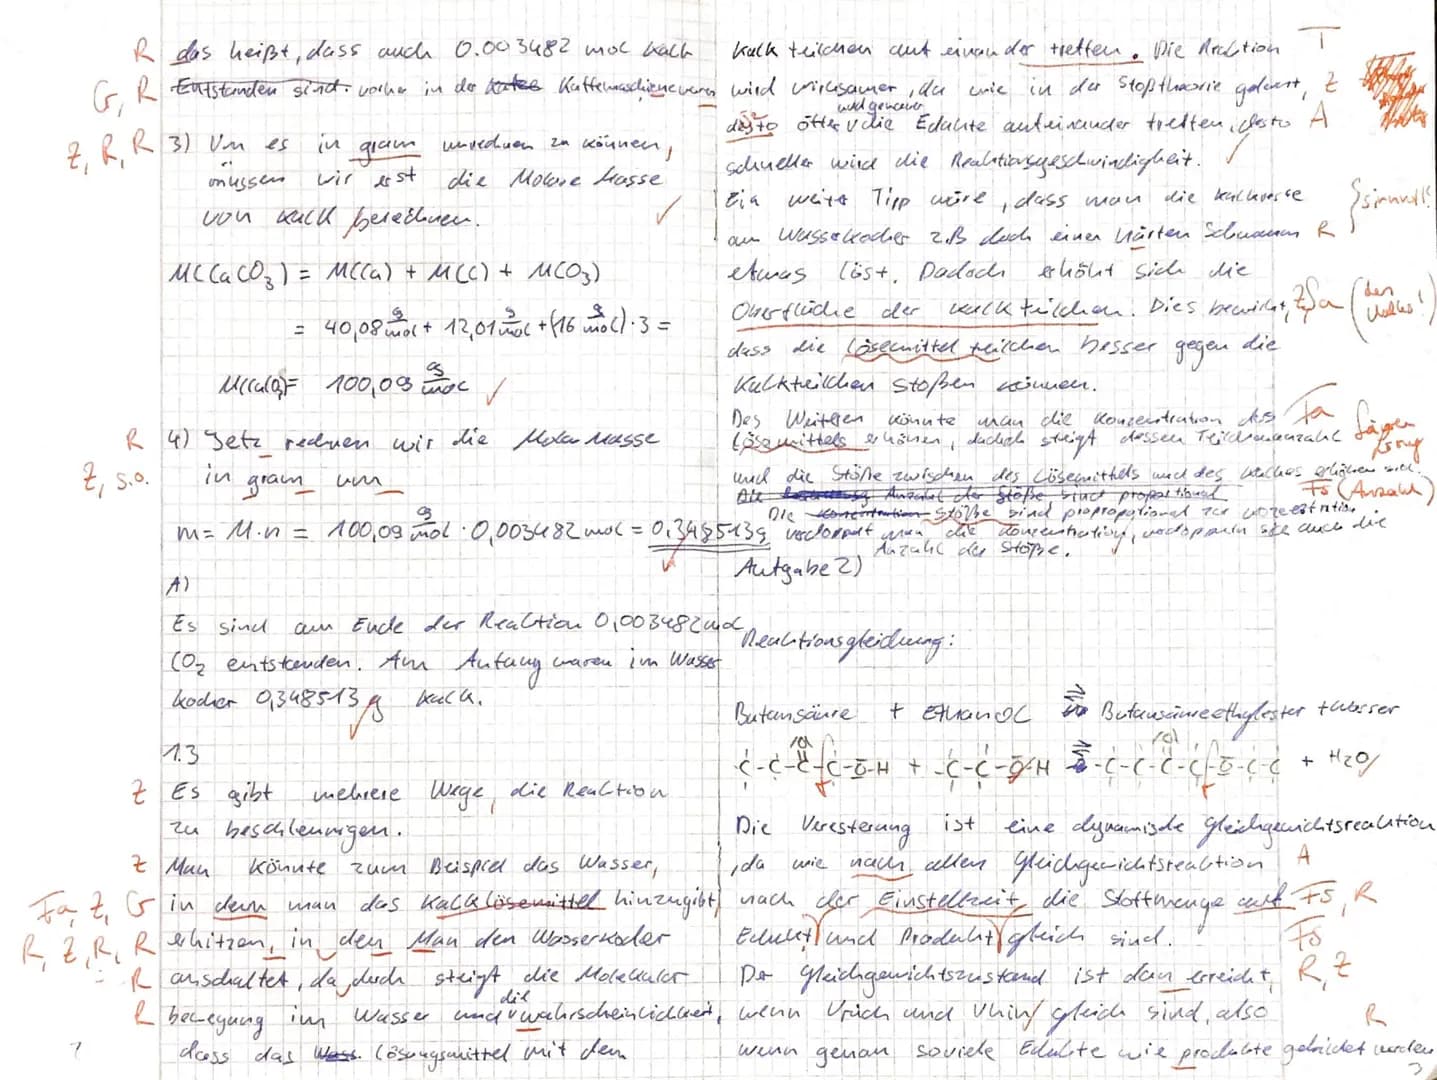 R das heißt, dass auch 0.003482 mol Kalk
G, R Entstanden sind. vorher in der Kaffemaschiene waren
Z, R, R 3) Um es in gram umrechnen zu können,
müssen wir erst die Molare Masse
von Kalk berechnen.
M(CaCO3) = M(Ca) + M(C) + M(O3)
= 40,08 g/mol + 12,01 g/mol + (16 g/mol) · 3 =
M(CaCO3) = 100,09 g/mol
R 4) Jetz rechnen wir die Molar Masse
Z, s.o. in gram um
m = M·n = 100,09 g/mol · 0,003482 mol = 0,348513g
A)
Es sind am Ende der Reaktion 0,003482 mol
CO2 entstanden. Am Anfang waren im Wasser
kocher 0,348513 g Kalk.
1.3
Z Es gibt mehrere Wege, die Reaktion
zu beschleunigen.
Z Man könnte zum Beispiel das Wasser,
Fa, Z, G in dem man das Kalklösemittel hinzugibt,
R, Z, R, R erhitzen, in den Man den Wasserkocher
R anschaltet, da durch steigt die Molekular
R bewegung im Wasser und die wahrscheinlichkeit,
dass das Lösungsmittel mit dem
Kalk teilchen auf einander treffen. Die Reaktion T
wird wirksamer, da wie in der Stoßtheorie gelernt, Z
desto öfter und genauer die Edukte aufeinander treffen, desto A
schneller wird die Reaktionsgeschwindigkeit.
Ein weiter Tipp wäre, dass man die Kalkreste } sinnvoll!
am Wasserkocher z.B doch einen härten Schwamm R
etwas löst. Dadoch erhöht sich die
Oberfläche der Kalk teilchen. Dies bewirkt, Z, Sa (des Kalks!)
dass die Lösemittel teilchen besser gegen die
Kalkteilchen stoßen können.
Des Weiteren könnte man die Konzentration des Fa
Lösemittels erhöhen, dadoch steigt dessen Teilchenanzahl Säurelösung
und die Stöße zwischen des Lösemittels und des Kalkes erhöhen sich.
Die Anzahl der Stöße sind proportional Fs (Anzahl)
Die Stöße sind propropotional zur Konzentration
verdoppelt man die Konzentration, verdoppeln sie auch die
Anzahl der Stöße.
Aufgabe 2)
Reaktionsgleichung:
Butansäure + Ethanol ⇌ Butansäureethylester + Wasser
-C-C-C-C-O-H + -C-C-O-H ⇌ -C-C-C-C-O-C-C + H2O
Die Veresterung ist eine dynamische Gleichgewichtsreaktion
, da wie nach allen Gleichgewichtsreaktion A
nach der Einstellzeit, die Stoffmenge auf Fs, R
Edukt und Produkt gleich sind. Fs
Der Gleichgewichtszustand ist dan erreicht, R, Z
wenn Vrück und Vhin gleich sind, also R
wenn genau soviele Edukte wie produkte gebildet werden